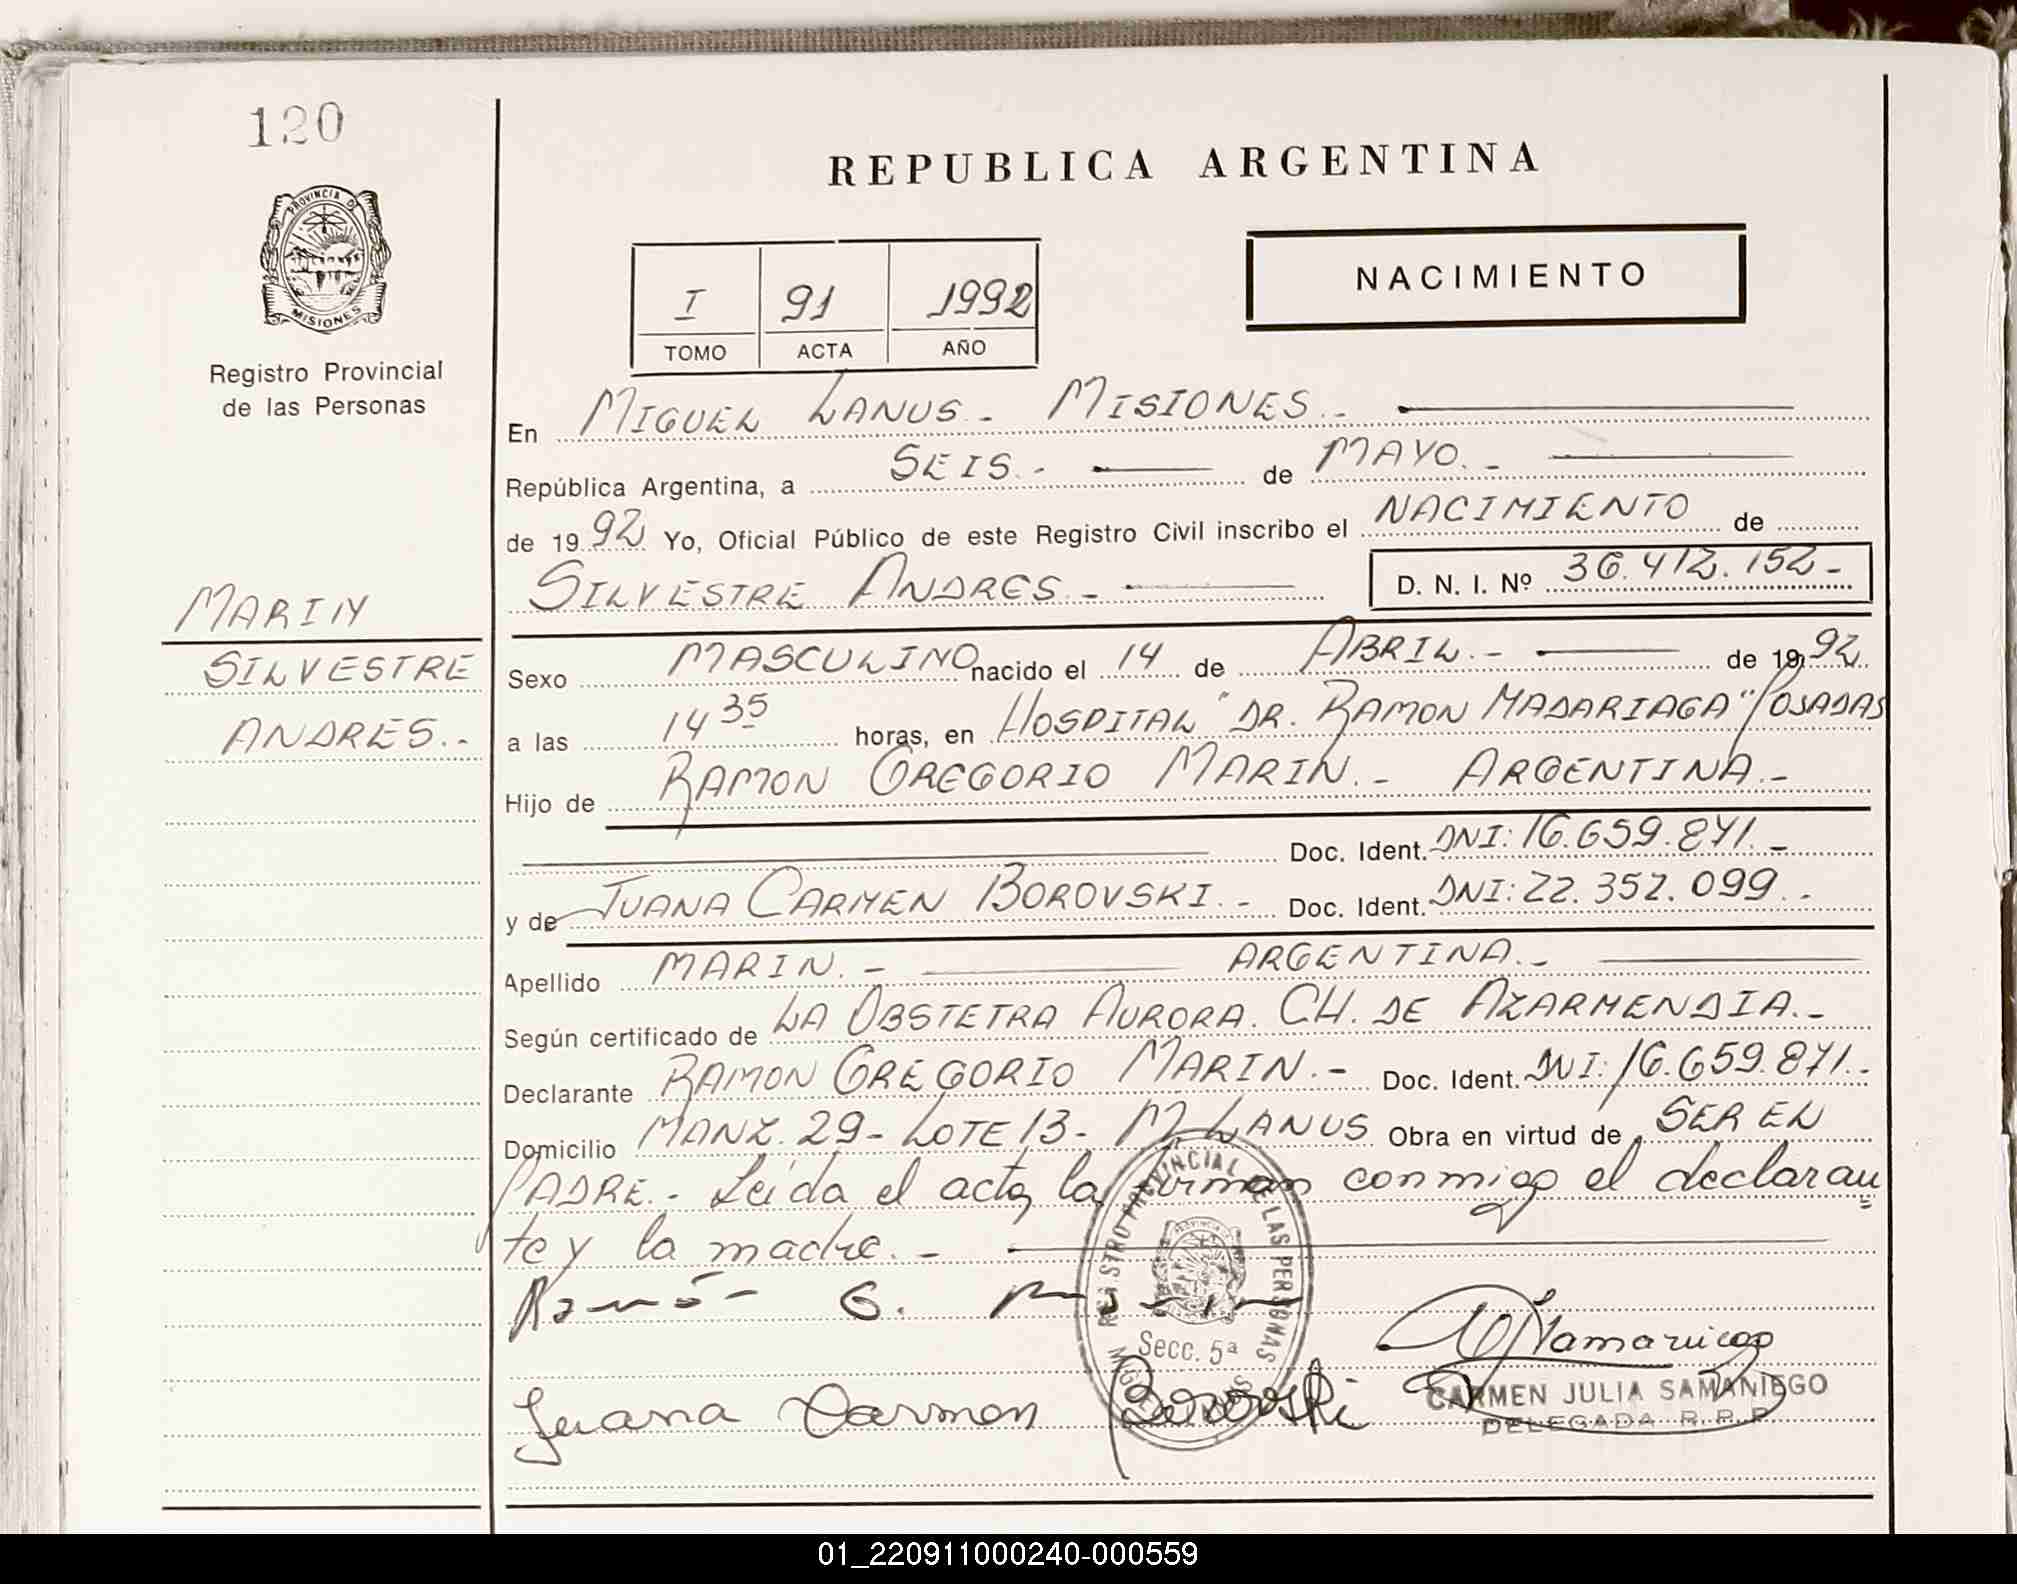 120
REPUBLICA ARGENTINA
PROVINCIA DE
MISIONES
Registro Provincial
de las Personas
I 91 1992
TOMO ACTA AÑO
NACIMIENTO
En MIGUEL LANUS.- MISIONES.-
República Argentina, a SEIS.- de MAYO.-
de 1992 Yo, Oficial Público de este Registro Civil inscribo el NACIMIENTO de
SILVESTRE ANDRES.- D. N. I. Nº 36.412.152-
MARIN
SILVESTRE
ANDRES..-
Sexo MASCULINO nacido el 14 de ABRIL.- de 1992
a las 14 35 horas, en HOSPITAL "DR. RAMON MADARIAGA" POSADAS
Hijo de RAMON GREGORIO MARIN.- ARGENTINA.-
Doc. Ident. DNI: 16.659.871.-
y de JUANA CARMEN BOROVSKI.- Doc. Ident. DNI: 22.352.099.-
Apellido MARIN.- ARGENTINA.-
Según certificado de LA OBSTETRA AURORA. CH. DE AZARMENDIA.-
Declarante RAMON GREGORIO MARIN.- Doc. Ident. DNI: 16.659.871.-
Domicilio MANZ. 29- LOTE 13- M LANUS Obra en virtud de SER EL
PADRE.- Leída el acta, la firman conmigo el declaran
te y la madre.-
Ramón G. Marin
REGISTRO PROVINCIAL DE LAS PERSONAS
Secc. 5ª
MIGUEL LANUS
Juana Carmen Borovski
CARMEN JULIA SAMANIEGO
DELEGADA R.P.P.
01_220911000240-000559